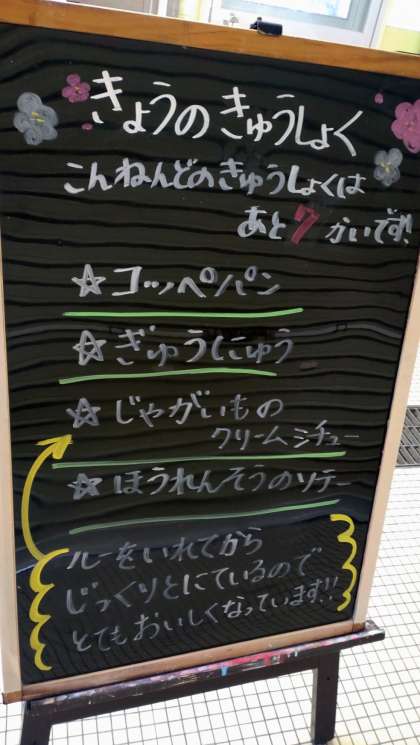 きょうのきゅうしょく
こんねんどのきゅうしょくは
あと7かいです!
☆コッペパン
☆ぎゅうにゅう
☆じゃがいもの
クリームシチュー
☆ほうれんそうのソテー
ルーをいれてから
じっくりとにているので
とてもおいしくなっています!!